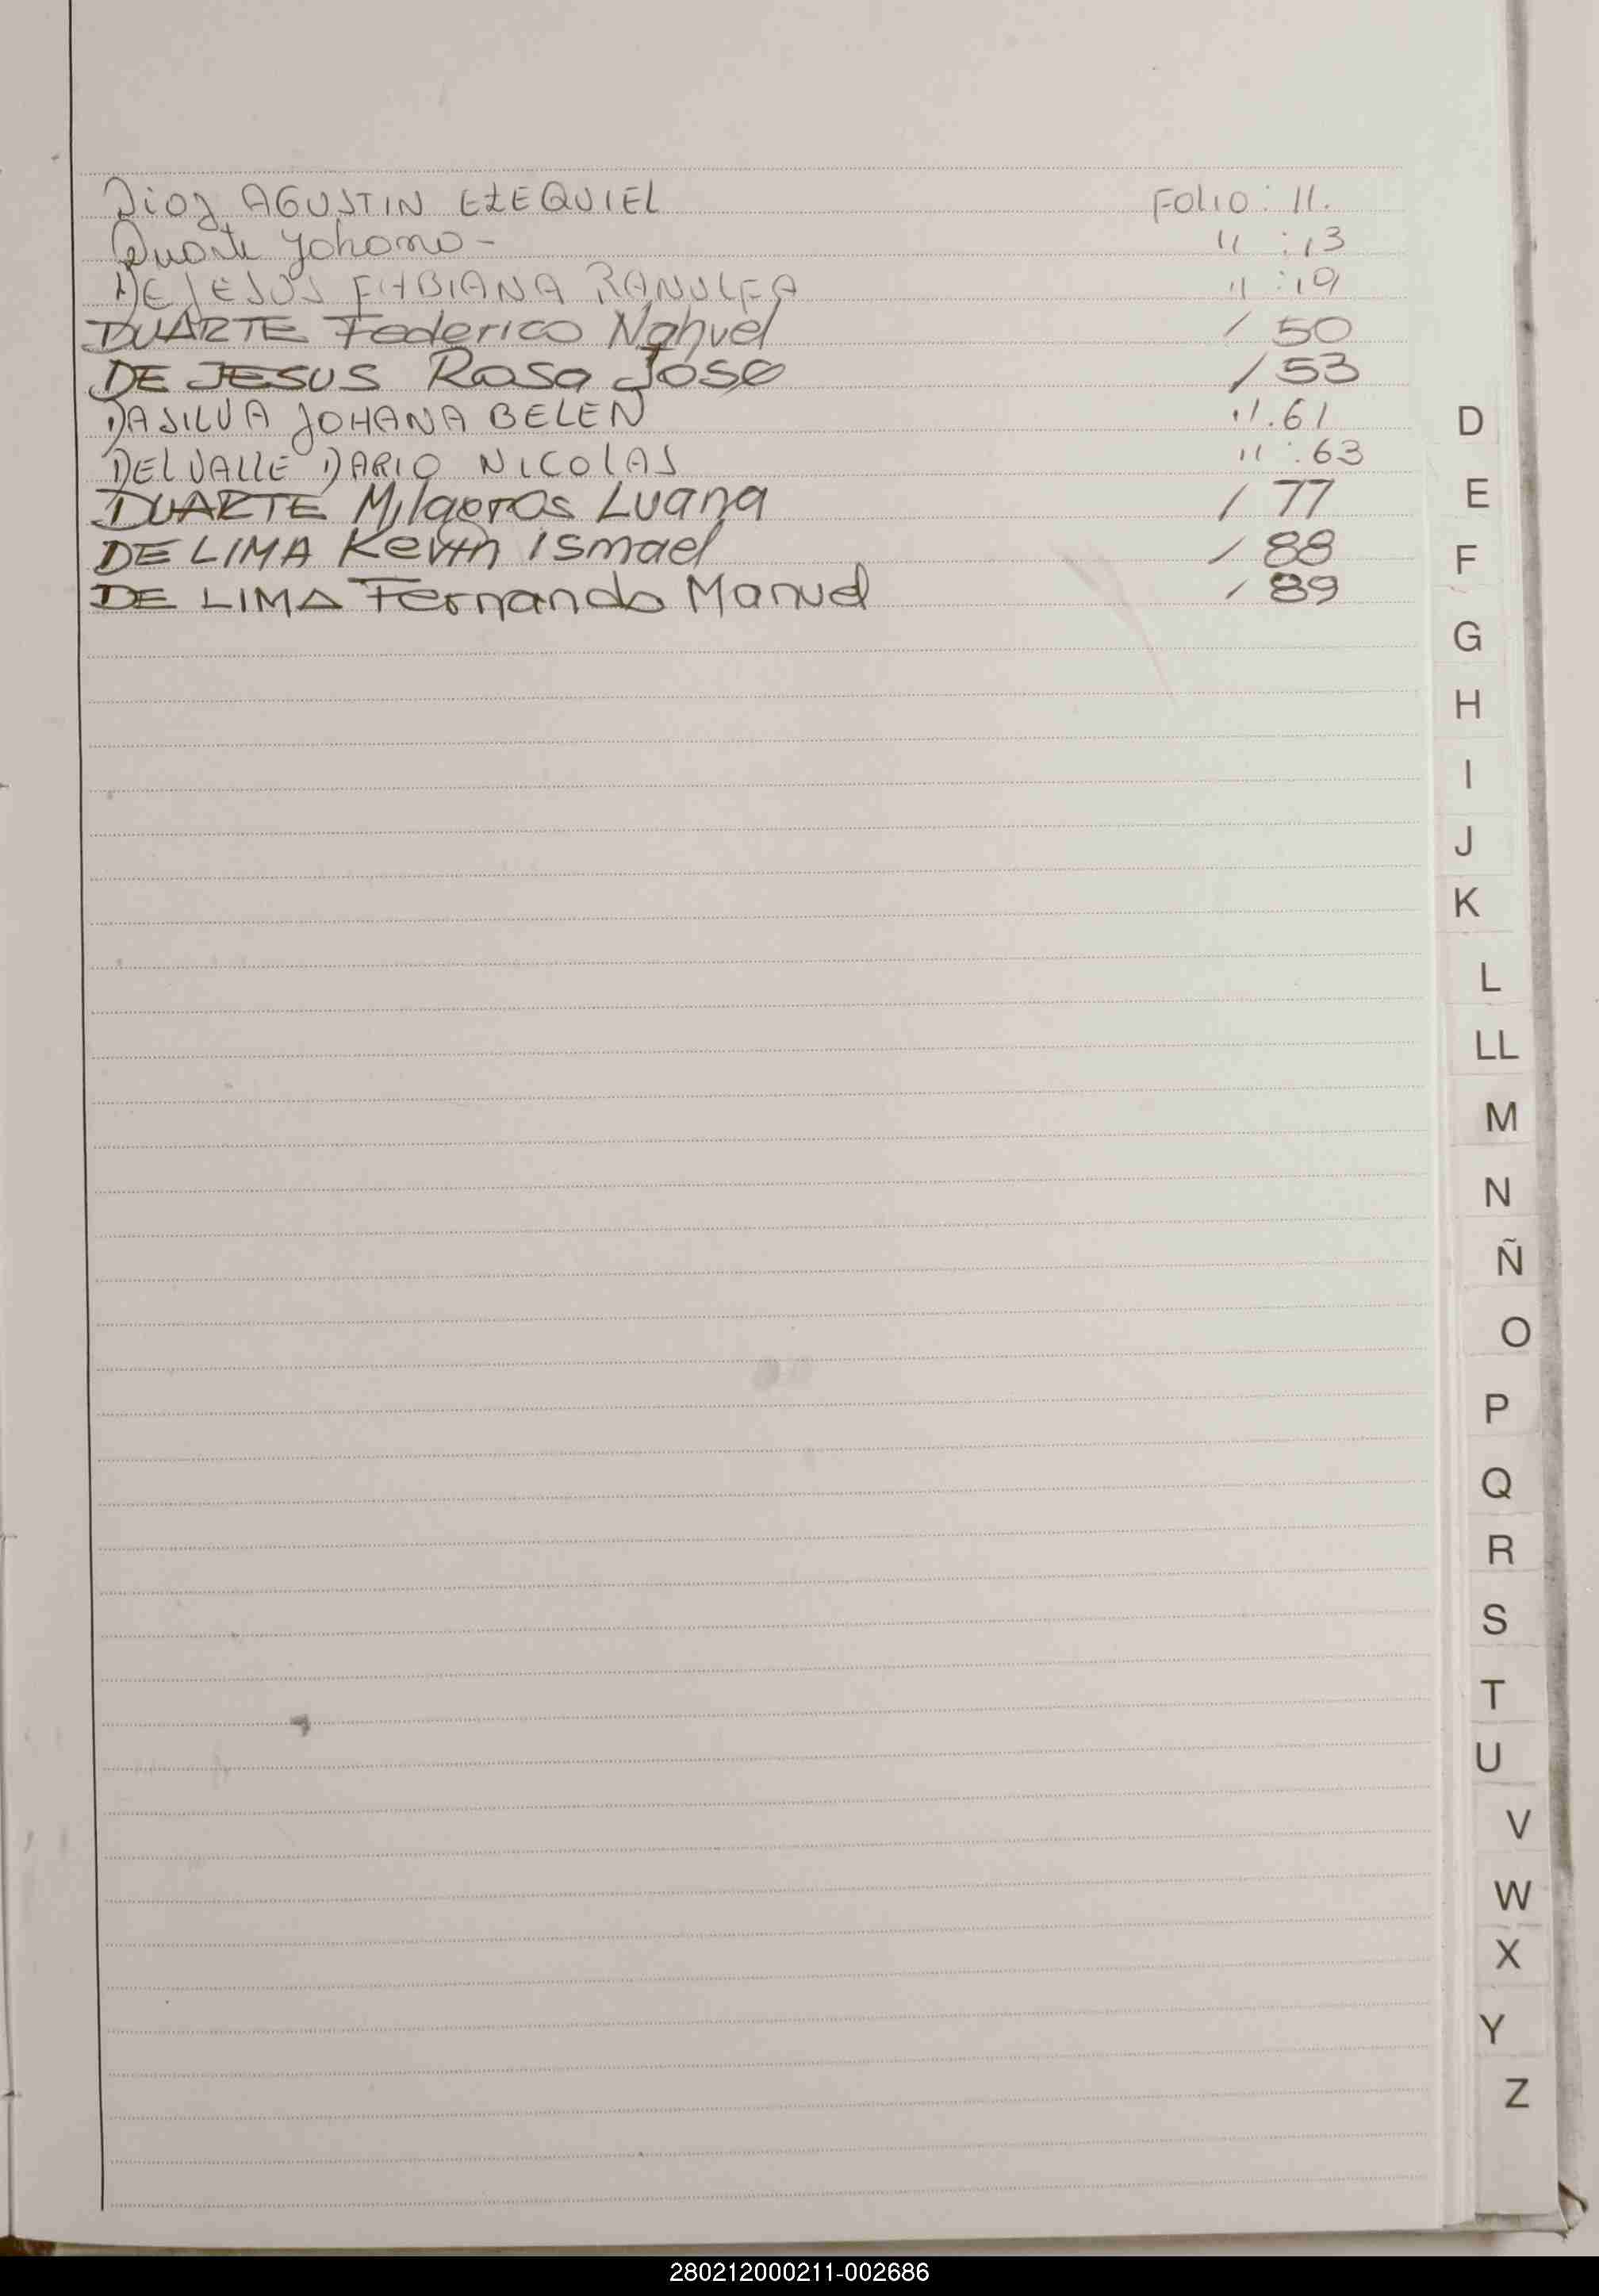 Diaz AGUSTIN EZEQUIEL Folio: 11.
Duarte Yohana - 11 : 13
DE JESUS FABIANA RANULFA 11 : 19
DUARTE Federico Nahuel / 50
DE JESUS Rosa Jose / 53
DASILVA JOHANA BELEN 11. 61
DELVALLE DARIO NICOLAS 11 : 63
DUARTE Milagros Luana / 77
DE LIMA Kevin ismael / 88
DE LIMA Fernando Manuel / 89
D
E
F
G
H
I
J
K
L
LL
M
N
Ñ
O
P
Q
R
S
T
U
V
W
X
Y
Z
280212000211-002686